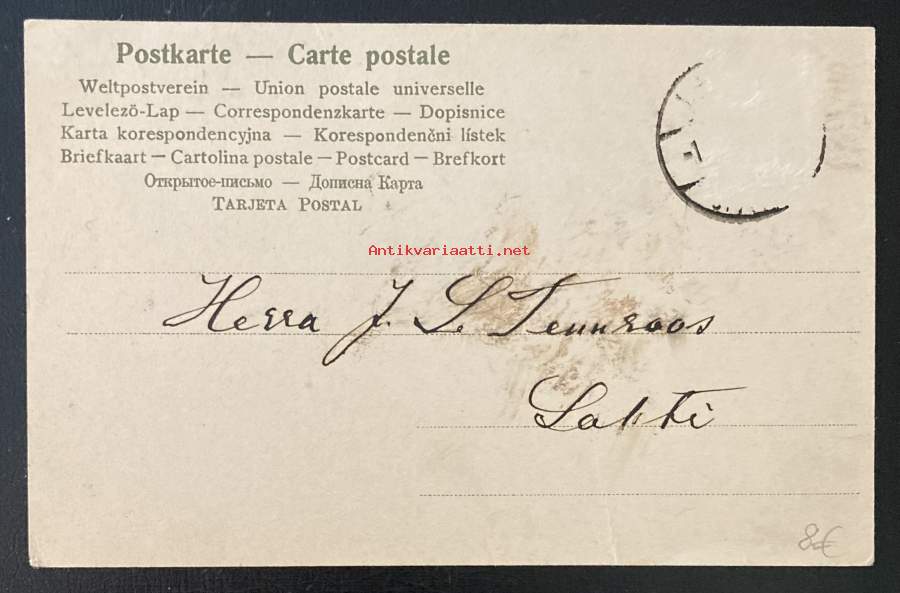 Postkarte — Carte postale
Weltpostverein — Union postale universelle
Levelező-Lap — Correspondenzkarte — Dopisnice
Karta korespondencyjna — Korespondenčni lístek
Briefkaart — Cartolina postale — Postcard — Brefkort
Открытое-письмо — Дописна Карта
TARJETA POSTAL
Antikvariaatti.net
Herra J. L. Tennroos
Lahti
8€